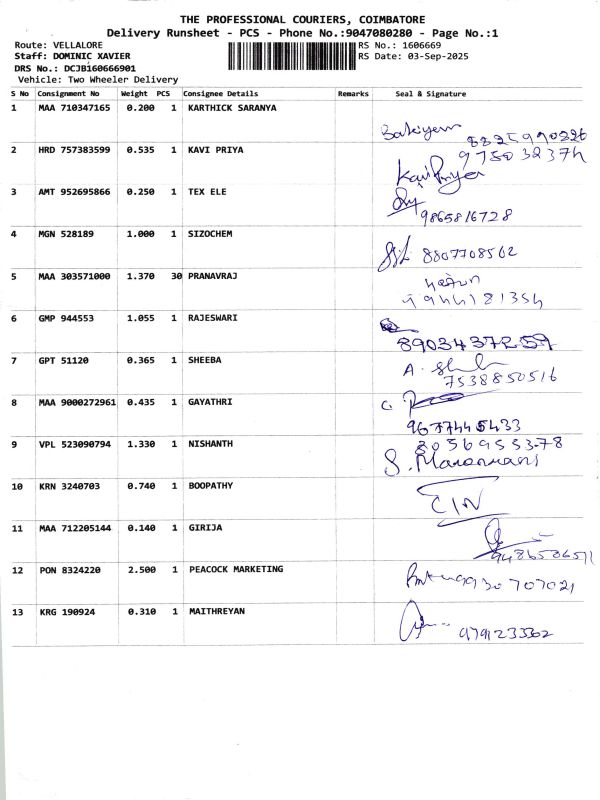 THE PROFESSIONAL COURIERS, COIMBATORE
Delivery Runsheet - PCS - Phone No.:9047080280 - Page No.:1
Route: VELLALORE RS No.: 1606669
Staff: DOMINIC XAVIER RS Date: 03-Sep-2025
DRS No.: DCJB160666901
Vehicle: Two Wheeler Delivery
S No Consignment No Weight PCS Consignee Details Remarks Seal & Signature
1 MAA 710347165 0.200 1 KARTHICK SARANYA
8825990826
2 HRD 757383599 0.535 1 KAVI PRIYA
9750323714
Kavi Priya
3 AMT 952695866 0.250 1 TEX ELE
9865816728
4 MGN 528189 1.000 1 SIZOCHEM
8807708562
5 MAA 303571000 1.370 30 PRANAVRAJ
6 GMP 944553 1.055 1 RAJESWARI
8903437259
7 GPT 51120 0.365 1 SHEEBA
A.
7538850516
8 MAA 9000272961 0.435 1 GAYATHRI
C.
9677445433
9 VPL 523090794 1.330 1 NISHANTH
8056955378
S.
10 KRN 3240703 0.740 1 BOOPATHY
11 MAA 712205144 0.140 1 GIRIJA
9486506511
12 PON 8324220 2.500 1 PEACOCK MARKETING
9930707021
13 KRG 190924 0.310 1 MAITHREYAN
9791233362